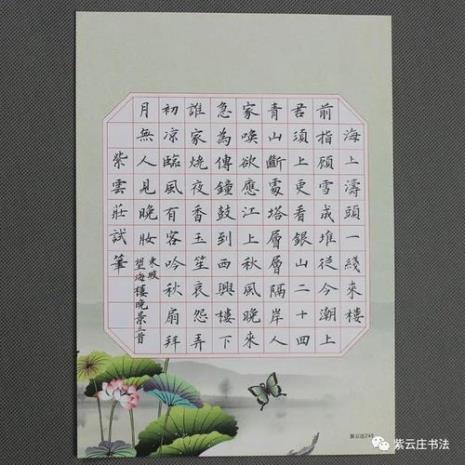 海上濤頭一綫來樓
前指顧雪成堆從今潮上
君須上更看銀山二十四
青山斷處塔層層隔岸人
家喚欲應江上秋風晚來
急為傳鐘鼓到西興樓下
誰家燒夜香玉笙哀怨弄
初凉臨風有客吟秋扇拜
月無人見晚妝
東坡
望海樓晚景三首
紫雲莊試筆
紫云庄书法